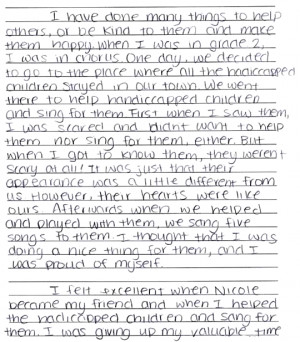 I have done many things to help
others, or be kind to them and make
them happy. When I was in grade 2,
I was in chorus. One day, we decided
to go to the place where all the hadiccapped
children stayed in our town. We went
there to help handiccapped children
and sing for them. First when I saw them,
I was scared and didnt want to help
them nor sing for them, either. But
when I got to know them, they werent
scary at all! It was just that their
appearance was a little different from
us. However, their hearts were like
ours. Afterwards when we helped
and played with them, we sang five
songs to them. I thought that I was
doing a nice thing for them, and I
was proud of myself.
I felt excellent when Nicole
became my friend and when I helped
the hadiccapped children and sang for
them. I was giving up my valuable time